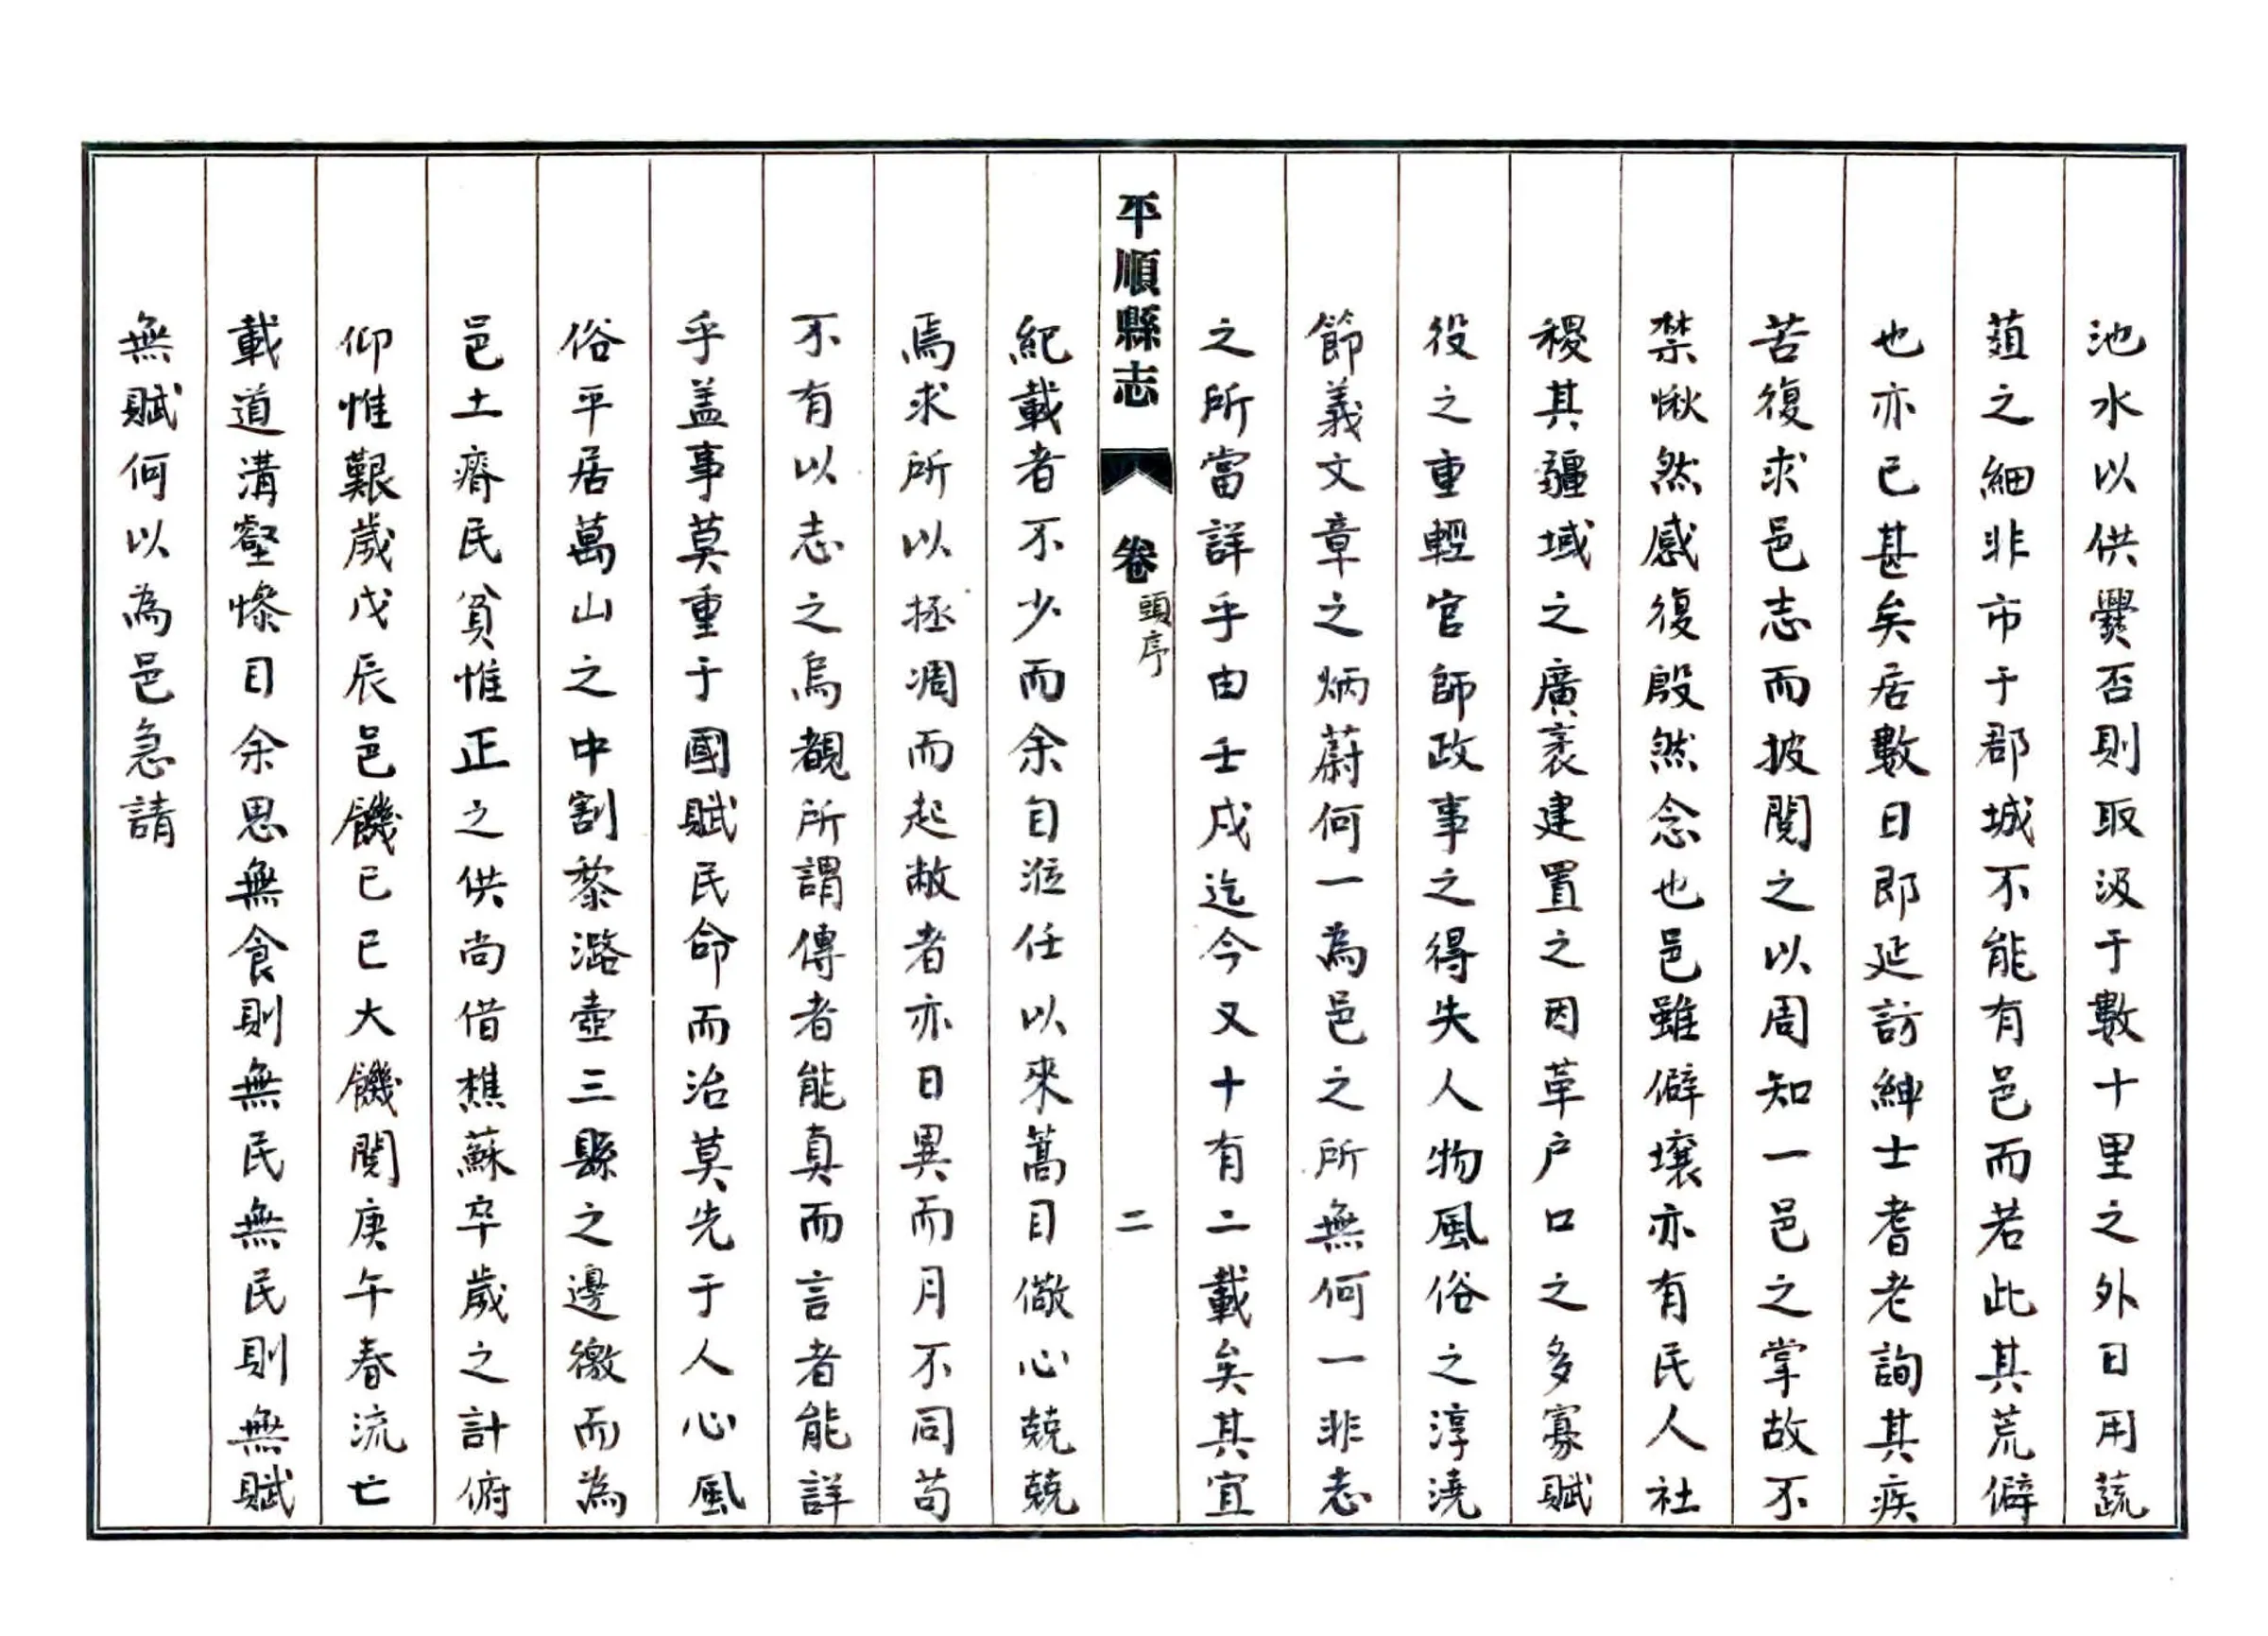 池水以供爨否則取汲于數十里之外日用蔬
蒩之細非市于郡城不能有邑而若此其荒僻
也亦已甚矣居數日即延訪紳士耆老詢其疾
苦復求邑志而披閱之以周知一邑之掌故不
禁愀然感復殷然念也邑雖僻壤亦有民人社
稷其疆域之廣袤建置之因革户口之多寡賦
役之重輕官師政事之得失人物風俗之淳澆
節義文章之炳蔚何一為邑之所無何一非志
之所當詳乎由壬戌迄今又十有二載矣其宜
平順縣志 卷 頭序 二
紀載者不少而余自涖任以來蒿目儆心兢兢
焉求所以拯凋而起敝者亦日異而月不同苟
不有以志之烏覩所謂傳者能真而言者能詳
乎盖事莫重于國賦民命而治莫先于人心風
俗平居萬山之中割黎潞壺三縣之邊徼而為
邑土瘠民貧惟正之供尚借樵蘇卒歲之計俯
仰惟艱歲戊辰邑饑已巳大饑閱庚午春流亡
載道溝壑慘目余思無食則無民無民則無賦
無賦何以為邑急請